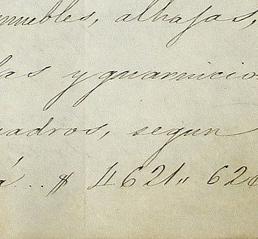 muebles, alhajas,
las y guarnicio
uadros, segun
á... $ 4621" 62